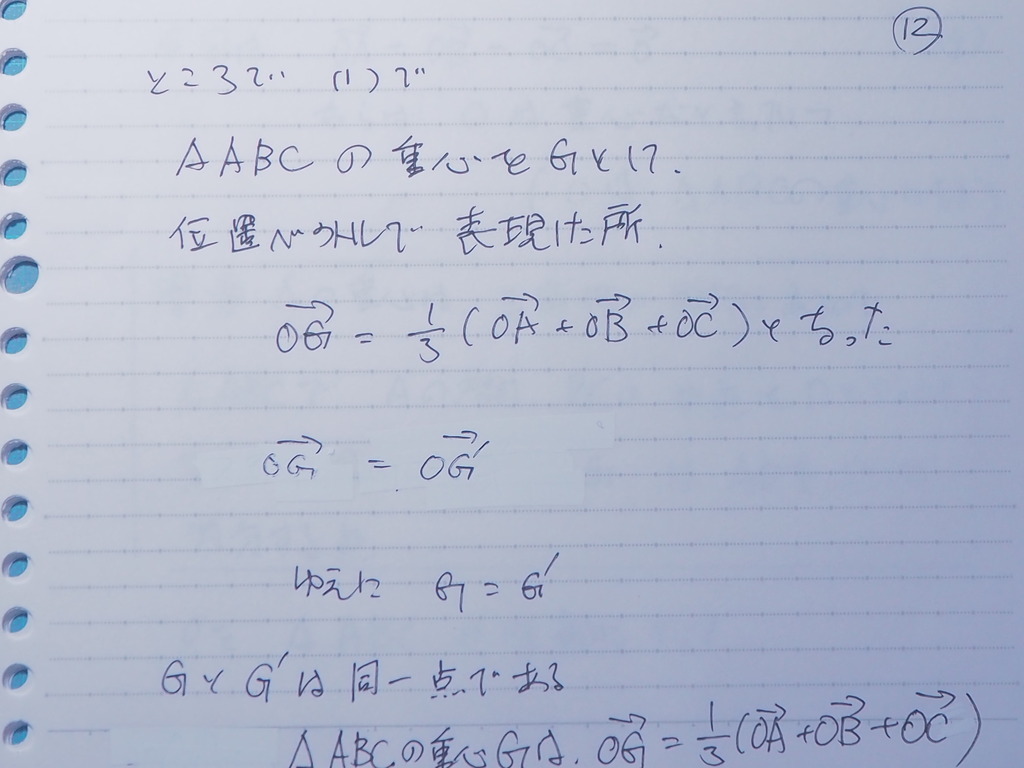 ⑫
ところで (1)で
△ABCの重心をGとして.
位置ベクトルで 表現した所.
\overrightarrow{OG} = \frac{1}{3}(\overrightarrow{OA} + \overrightarrow{OB} + \overrightarrow{OC}) となった
\overrightarrow{OG} = \overrightarrow{OG'}
ゆえに G = G'
GとG'は同一点である
△ABCの重心Gは. \overrightarrow{OG} = \frac{1}{3}(\overrightarrow{OA} + \overrightarrow{OB} + \overrightarrow{OC})